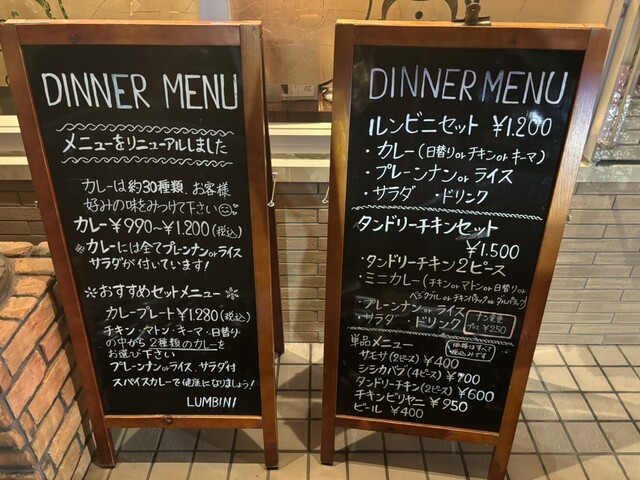 DINNER MENU
メニューをリニューアルしました
カレーは約30種類、お客様
好みの味をみつけて下さい
カレー¥990~¥1.200(税込)
※カレーには全てプレーンナンorライス
サラダが付いています!
※おすすめセットメニュー※
カレープレート¥1.280(税込)
チキン・マトン・キーマ・日替り
の中から2種類のカレーを
お選び下さい
プレーンナンorライス、サラダ付
スパイスカレーで健康になりましょう!
LUMBINI
DINNER MENU
ルンビニセット ¥1.200
・カレー(日替りorチキンorキーマ)
・プレーンナンorライス
・サラダ ・ドリンク
タンドリーチキンセット
¥1.500
・タンドリーチキン2ピース
・ミニカレー(チキンorマトンor日替りor
・プレーンナンorライス
・サラダ ・ドリンク
ナン変更
プラス ¥250
単品メニュー
価格はすべて
税込みです
サモサ(2ピース)¥400
シシカバブ(4ピース)¥700
タンドリーチキン(2ピース)¥600
チキンビリヤニ ¥950
ビール ¥400